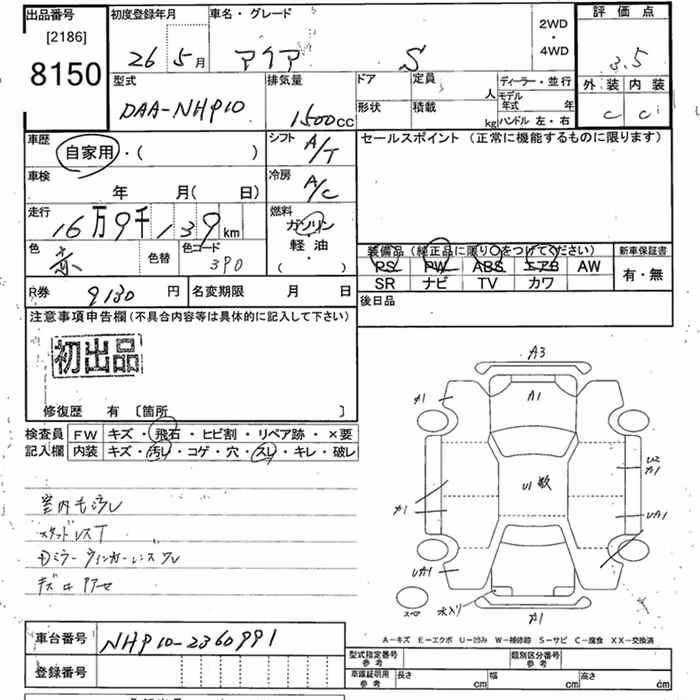 出品番号
[2186]
8150
初度登録年月 26 5月
車名・グレード アクア S
2WD・4WD
評価点 3.5
外装 内装
C C
型式 DAA-NHP10
排気量 1500cc
ドア 定員 人
形状 積載 kg
ディーラー・並行
モデル年式 年
ハンドル 左・右
車歴 自家用・( )
シフト A/T
セールスポイント (正常に機能するものに限ります)
車検 年 月(日)
冷房 A/C
走行 16万9千139km
燃料 ガソリン
軽・油
( ・ )
色 色替 色コード 3P0
装備品(純正品に限り○をつけてください)
PS PW ABS エアB AW
SR ナビ TV カワ
新車保証書
有・無
R券 9130円
名変期限 月 日
後日品
注意事項申告欄(不具合内容等は具体的に記入して下さい)
初出品
修復歴 有 〔箇所 〕
検査員記入欄
FW キズ・飛石・ヒビ割・リペア跡・×要
内装 キズ・汚レ・コゲ・穴・スレ・キレ・破レ
室内モ汚レ
スタッドレスT
ドミラーウィンカーレンズワレ
A3
A1
カ1
U1数
カ1
U2
カ1
Uカ1
Uカ1
スペア
水入り
カ1
A-キズ E-エクボ U-凹み W-補修跡 S-サビ C-腐食 XX-交換済
車台番号 NHP10-2360991
登録番号
型式指定番号 参考
類別区分番号 参考
車庫証明用 参考 長さ cm 幅 cm 高さ cm